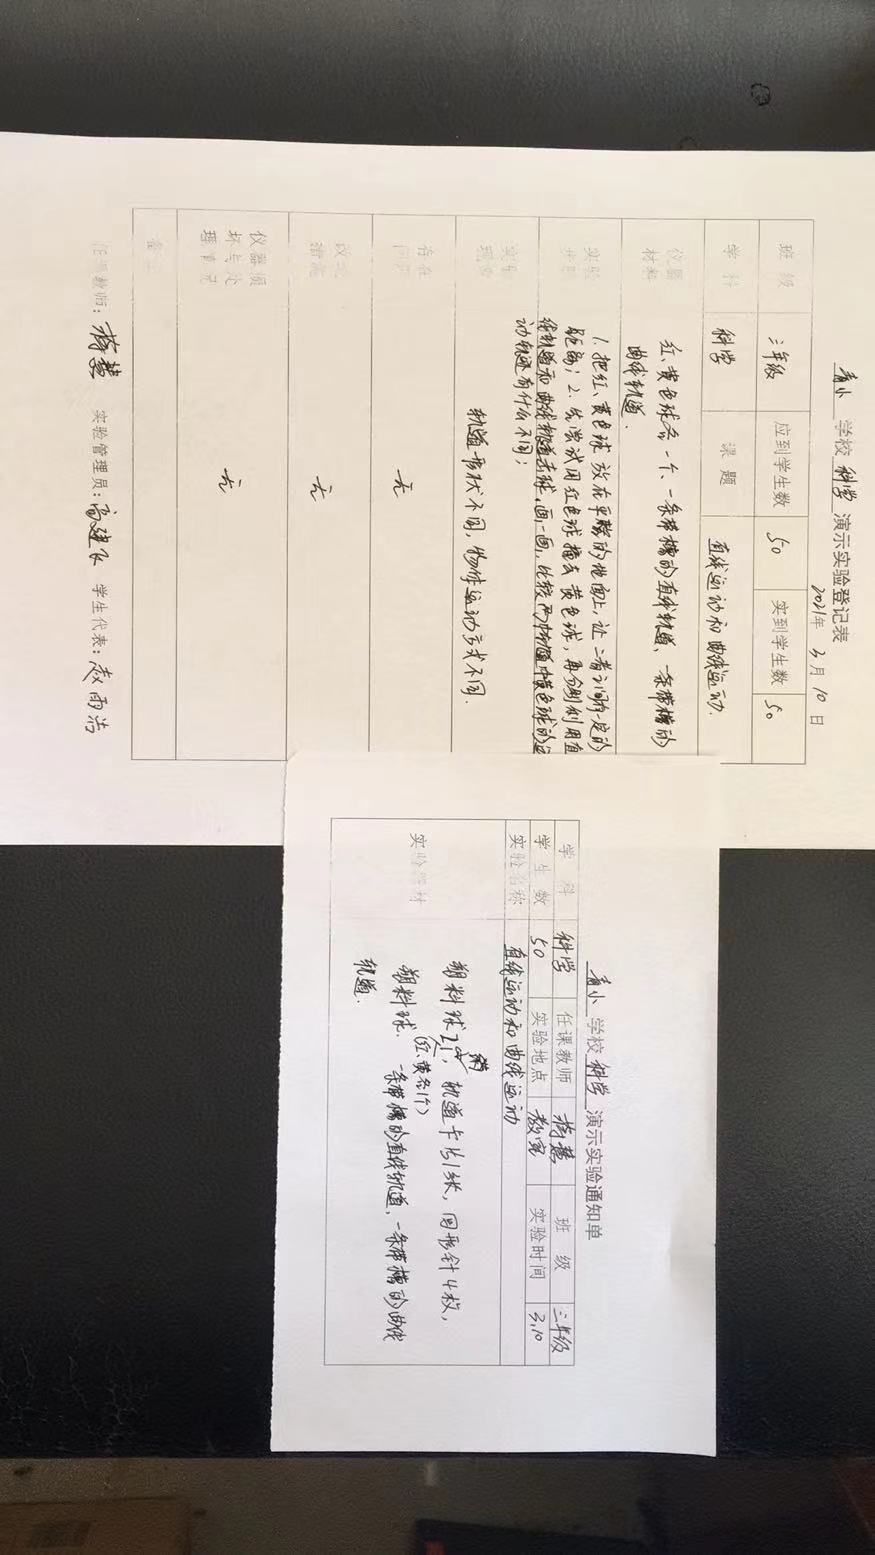 看小 学校 科学 演示实验登记表
2021年 3月 10日
班级 三年级 应到学生数 50 实到学生数 50
学科 科学 课题 直线运动和曲线运动.
仪器材料 红、黄色球各一个、一条带槽的直线轨道、一条带槽的
曲线轨道.
实验步骤 1. 把红、黄色球放在平整的地面上,让二者之间有一定的
距离; 2. 先尝试用红色球撞击黄色球,再分别利用直
线轨道和曲线轨道击球,画一画,比较两中黄色球的运
动轨迹有什么不同;
实验现象 轨道形状不同,物体运动方式不同.
存在问题 无
改进措施 无
仪器损坏与处理情况 无
备注
任课教师: 蒋慧 实验管理员: 高建飞 学生代表: 赵雨浩
看小 学校 科学 演示实验通知单
学科 科学 任课教师 蒋慧 班级 三年级
学生数 50 实验地点 教室 实验时间 3.10
实验名称 直线运动和曲线运动
实验器材 塑料球2个, 轨道卡片1张, 回形针4枚,
(红、黄各1个)
塑料球. 一条带槽的直线轨道、一条带槽的曲线
轨道.